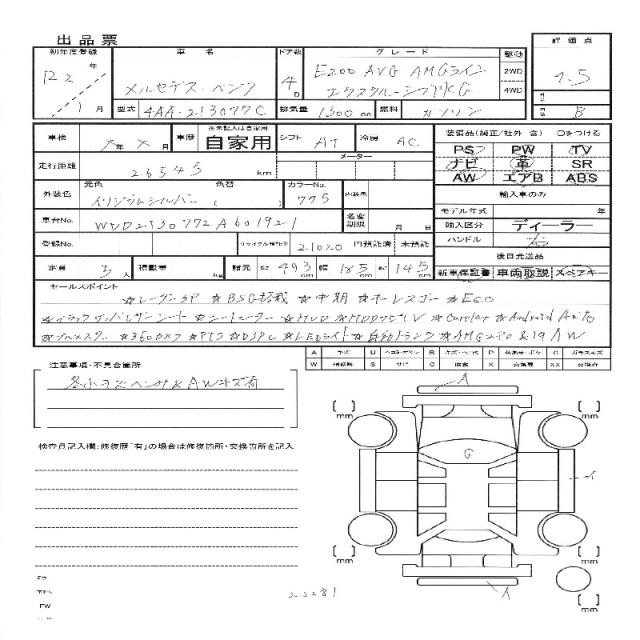 出品票
初年度登録 車名 ドア数 グレード 駆動 評価点
年 メルセデス・ベンツ 4D E200 AVG AMGライン 2WD
エクスクルーシブPKG 4WD
月 型式 4AA-213077C 排気量 1500 cc 燃料 ガソリン B
車検 年 月 車歴 自家用 シフト AT 冷房 AC
装備品(純正/社外 含) ○をつける
走行距離 26545 km メーター
PS PW TV
ナビ 革 SR
AW エアB ABS
外装色 元色 イリジウムシルバー 色替 ( ) カラーNo. 775 内装色
輸入車のみ
モデル年式 年
車台No. W1D2130772A601921 名変期限 月 日
輸入区分 ディーラー
登録No. リサイクル預託金 21020 円預託済 未預託
ハンドル 右
定員 人 積載量 kg 諸元 長 493 cm 幅 185 cm 高 145 cm
後日発送品
新車保証書 車両取説 スペアキー
セールスポイント
☆レーダーSP ☆BSG搭載 ☆中期 ☆キーレスゴー ☆Eco
☆ブラックナッパレザーシート ☆シートヒーター ☆HUD ☆HDDナビTV ☆CarPlay ☆Android Auto
☆ブルメスター ☆360°カメラ ☆PTS ☆DSRC ☆LEDライト ☆自動トランク ☆AMGエアロ&19AW
注意事項・不具合箇所
各小キズヘコミ&AWキズ有
A キズ U B C
W S P X XX
検査員記入欄:修復歴「有」の場合は修復箇所・交換箇所を記入
A
mm mm
G
イ
mm mm
A
mm
22281
FW